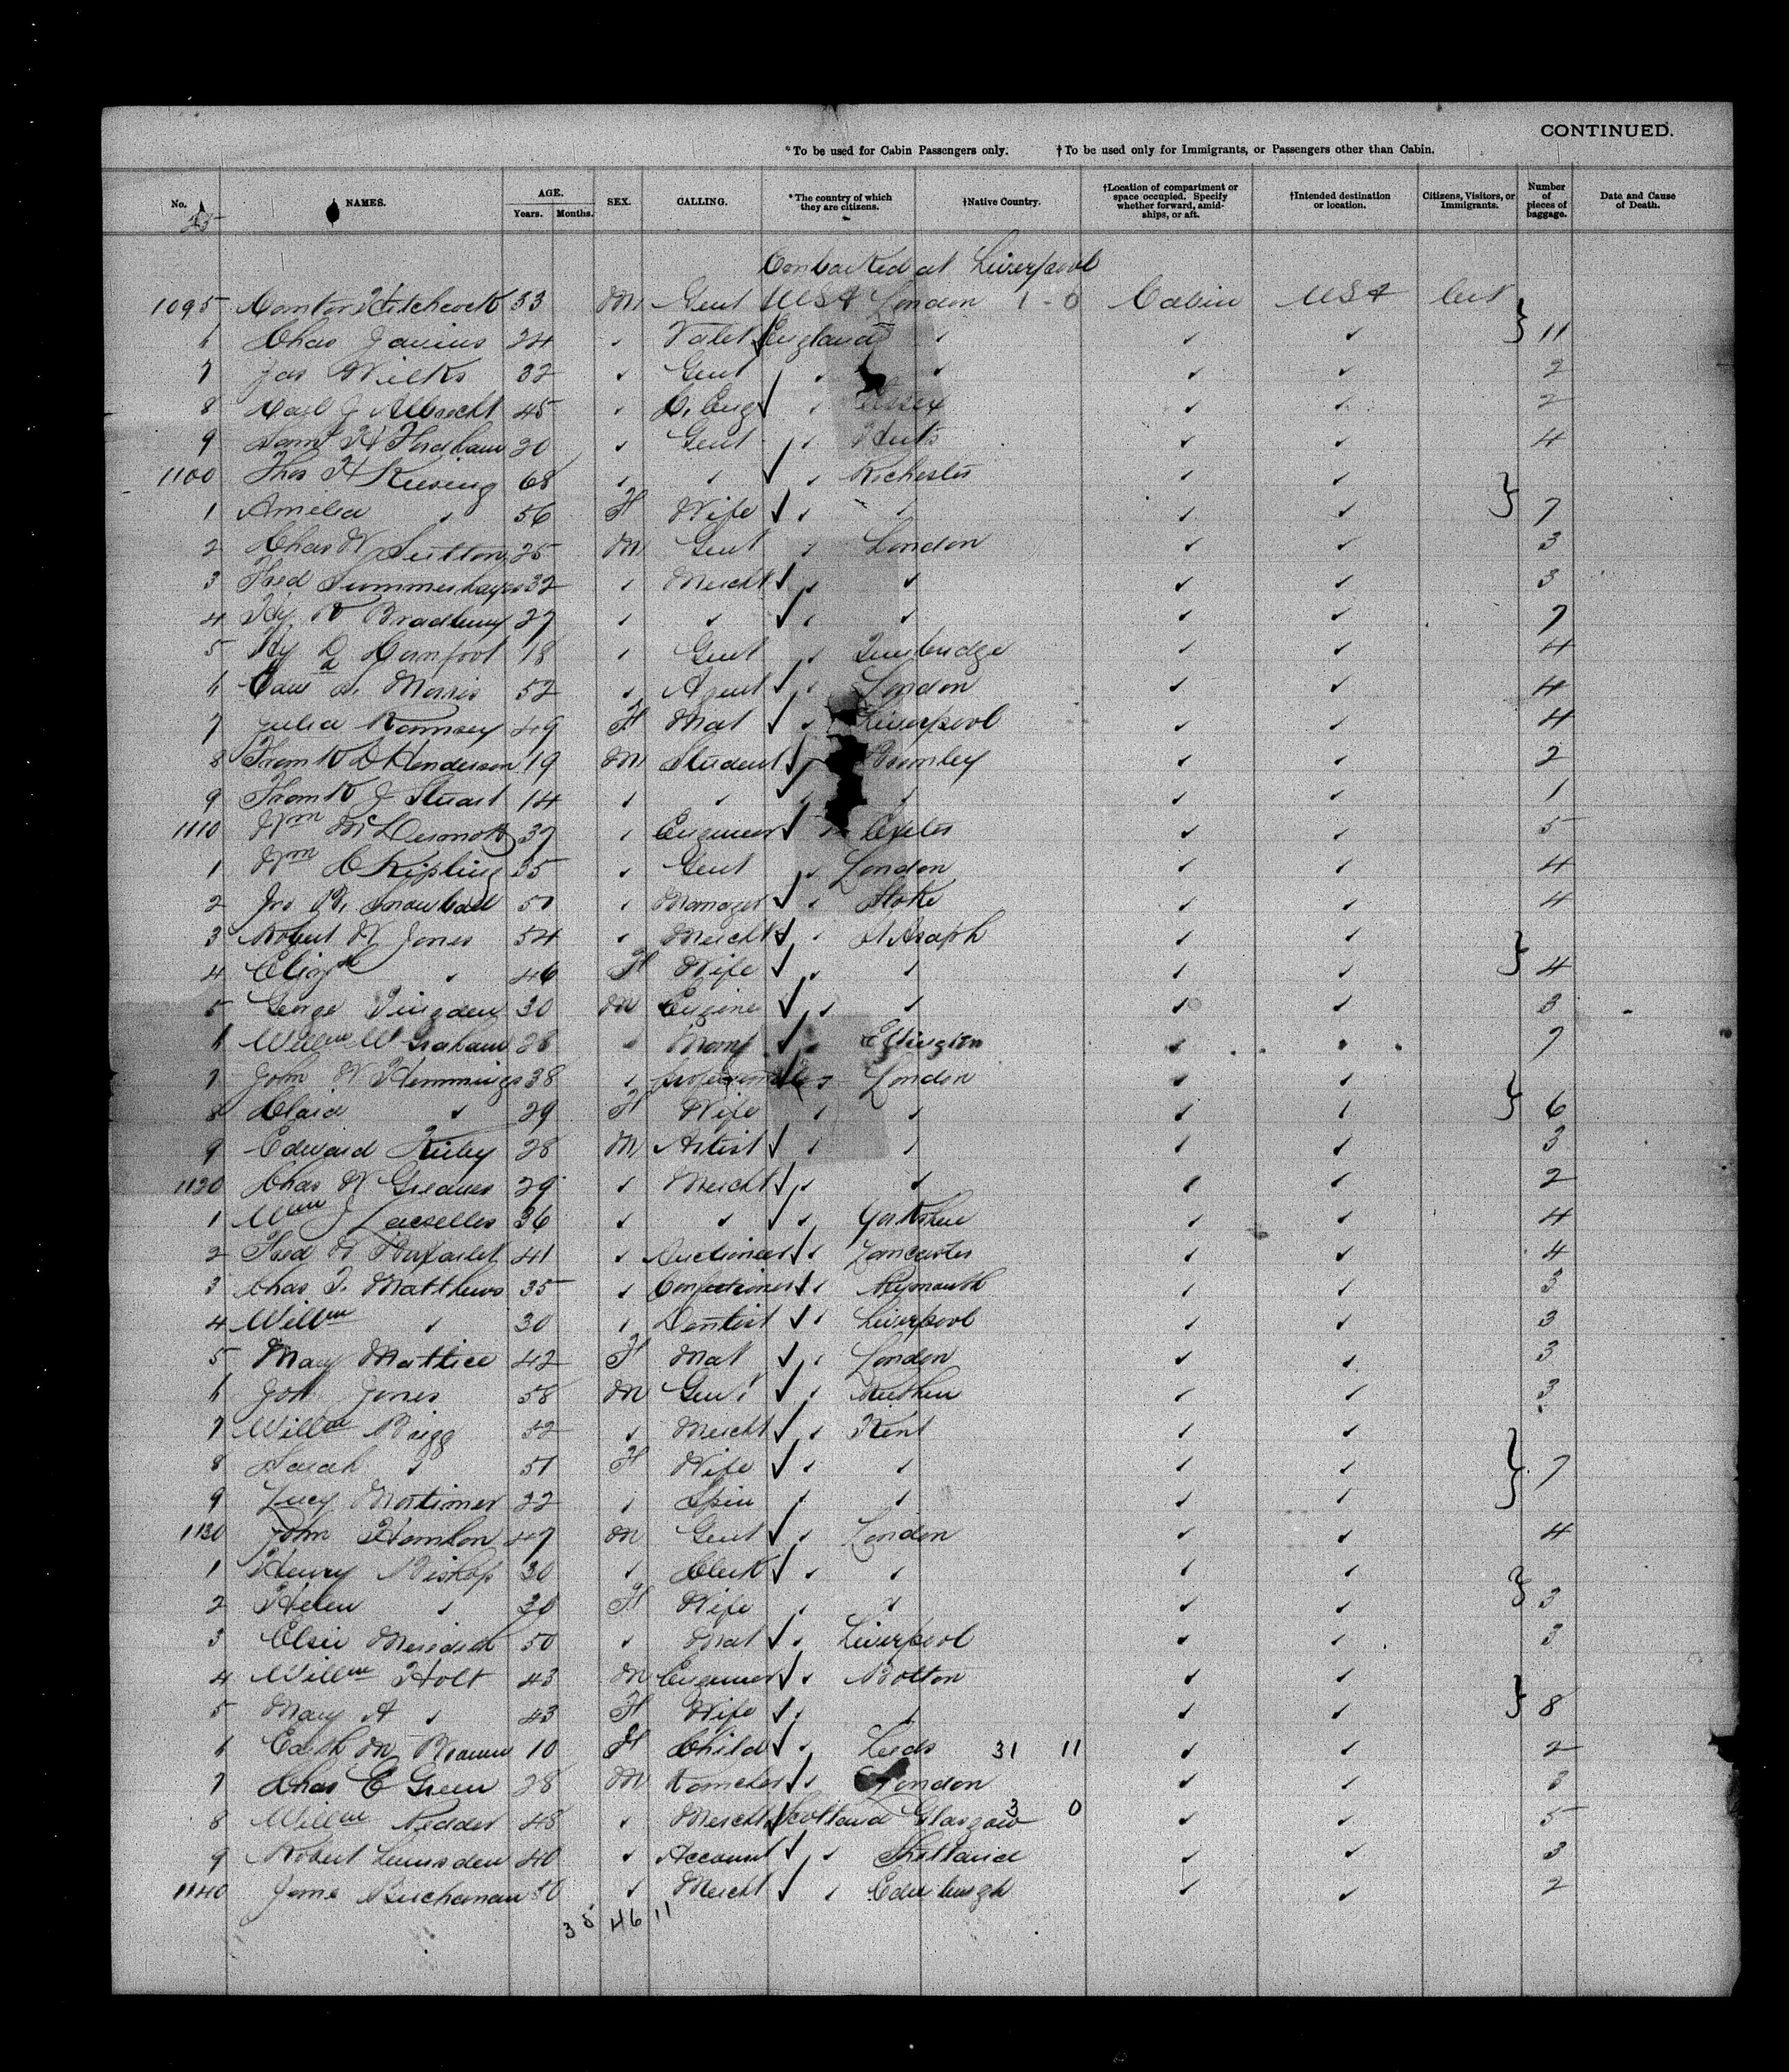 CONTINUED.
*To be used for Cabin Passengers only. †To be used only for Immigrants, or Passengers other than Cabin.
No. NAMES. AGE. Years. Months. SEX. CALLING. *The country of which they are citizens. †Native Country. †Location of compartment or space occupied. Specify whether forward, amidships, or aft. †Intended destination or location. Citizens, Visitors, or Immigrants. Number of pieces of baggage. Date and Cause of Death.
Embarked at Liverpool
1095 Hitchcock 53 M Gent USA London 1 - 0 Cabin USA
6 Chas 24 ✓ Valet ✓ England ✓ ✓ ✓ } 11
7 Jas Wilks 32 ✓ Gent ✓ ✓ ✓ ✓ 2
8 Carl J Albrecht 45 ✓ C. Eng ✓ ✓ Essex ✓ ✓ 2
9 Saml H Fordham 20 ✓ Gent ✓ ✓ Herts ✓ ✓ 4
1100 Thos H Keesing 68 ✓ ✓ ✓ ✓ Rochester ✓ ✓
1 Amelia ✓ 56 F Wife ✓ ✓ ✓ ✓ ✓ } 7
2 Chas W Sutton 25 M Gent ✓ London ✓ ✓ 3
3 Fred Summerhayes 32 ✓ Mercht ✓ ✓ ✓ ✓ ✓ 3
4 Hy. W Bradbury 27 ✓ ✓ ✓ ✓ ✓ ✓ ✓ 7
5 Hy 18 ✓ Gent ✓ Tunbridge ✓ ✓ 4
6 Edw Morris 52 ✓ Agent ✓ ✓ London ✓ ✓ 4
7 Julia Ramsey 49 F Mat ✓ ✓ Liverpool ✓ ✓ 4
8 D Henderson 19 M Student ✓ ✓ Bromley ✓ ✓ 2
9 J Stuart 14 ✓ ✓ ✓ ✓ ✓ ✓ ✓ 1
1110 Wm McDermott 37 ✓ Engineer ✓ ✓ Exeter ✓ ✓ 5
1 Wm C Kipling 35 ✓ Gent ✓ London ✓ ✓ 4
2 Jno Snowball 50 ✓ Manager ✓ ✓ Stoke ✓ ✓ 4
3 Robert W Jones 54 ✓ Mercht ✓ ✓ St Asaph ✓ ✓
4 Elizth ✓ 46 F Wife ✓ ✓ ✓ ✓ ✓ } 4
5 George 30 M Engine ✓ ✓ ✓ ✓ ✓ 3
6 Willm W Graham 28 Manf ✓ 7
7 John W Hemmings 38 ✓ ✓ London ✓ ✓
8 Clara ✓ 29 F Wife ✓ ✓ ✓ ✓ } 6
9 Edward 28 M Artist ✓ ✓ ✓ ✓ ✓ 3
1120 Chas W Greaves 29 ✓ Mercht ✓ ✓ ✓ ✓ ✓ 2
1 Wm J Lascelles 36 ✓ ✓ ✓ ✓ Yorkshire ✓ ✓ 4
2 Fred W 41 ✓ Auctioneer ✓ ✓ Lancaster ✓ ✓ 4
3 Chas T. Matthews 35 ✓ Confectioner ✓ ✓ Plymouth ✓ ✓ 3
4 Willm ✓ 30 ✓ Dentist ✓ ✓ Liverpool ✓ ✓ 3
5 Mary Mattice 42 F Mat ✓ ✓ London ✓ ✓ 3
6 Jones 58 M Gent ✓ ✓ Ruthen ✓ ✓ 3
7 Willm Bigg 52 ✓ Mercht ✓ ✓ Kent ✓ ✓
8 Sarah ✓ 51 F Wife ✓ ✓ ✓ ✓ ✓ } 7
9 Lucy Mortimer 22 ✓ Spin ✓ ✓ ✓ ✓
1130 John Hamlon 47 M Gent ✓ ✓ London ✓ ✓ 4
1 Henry Bishop 30 ✓ Clerk ✓ ✓ ✓ ✓ ✓
2 Helen ✓ 30 F Wife ✓ ✓ ✓ ✓ } 3
3 Elsie 50 ✓ Mat ✓ ✓ Liverpool ✓ ✓ 3
4 Willm Holt 43 M Engineer ✓ ✓ Bolton ✓ ✓
5 Mary A ✓ 43 F Wife ✓ ✓ ✓ ✓ ✓ } 8
6 Edith M Brown 10 F Child ✓ ✓ Leeds 31 11 ✓ ✓ 2
7 Chas E Green 28 M Rancher ✓ ✓ London ✓ ✓ 3
8 Willm 48 ✓ Mercht ✓ Scotland Glasgow 3 0 ✓ ✓ 5
9 Robert Lumsden 40 ✓ Account ✓ ✓ Shetland ✓ ✓ 3
1140 Buchanan 50 ✓ Mercht ✓ ✓ Edinburgh ✓ ✓ 2
35 46 11